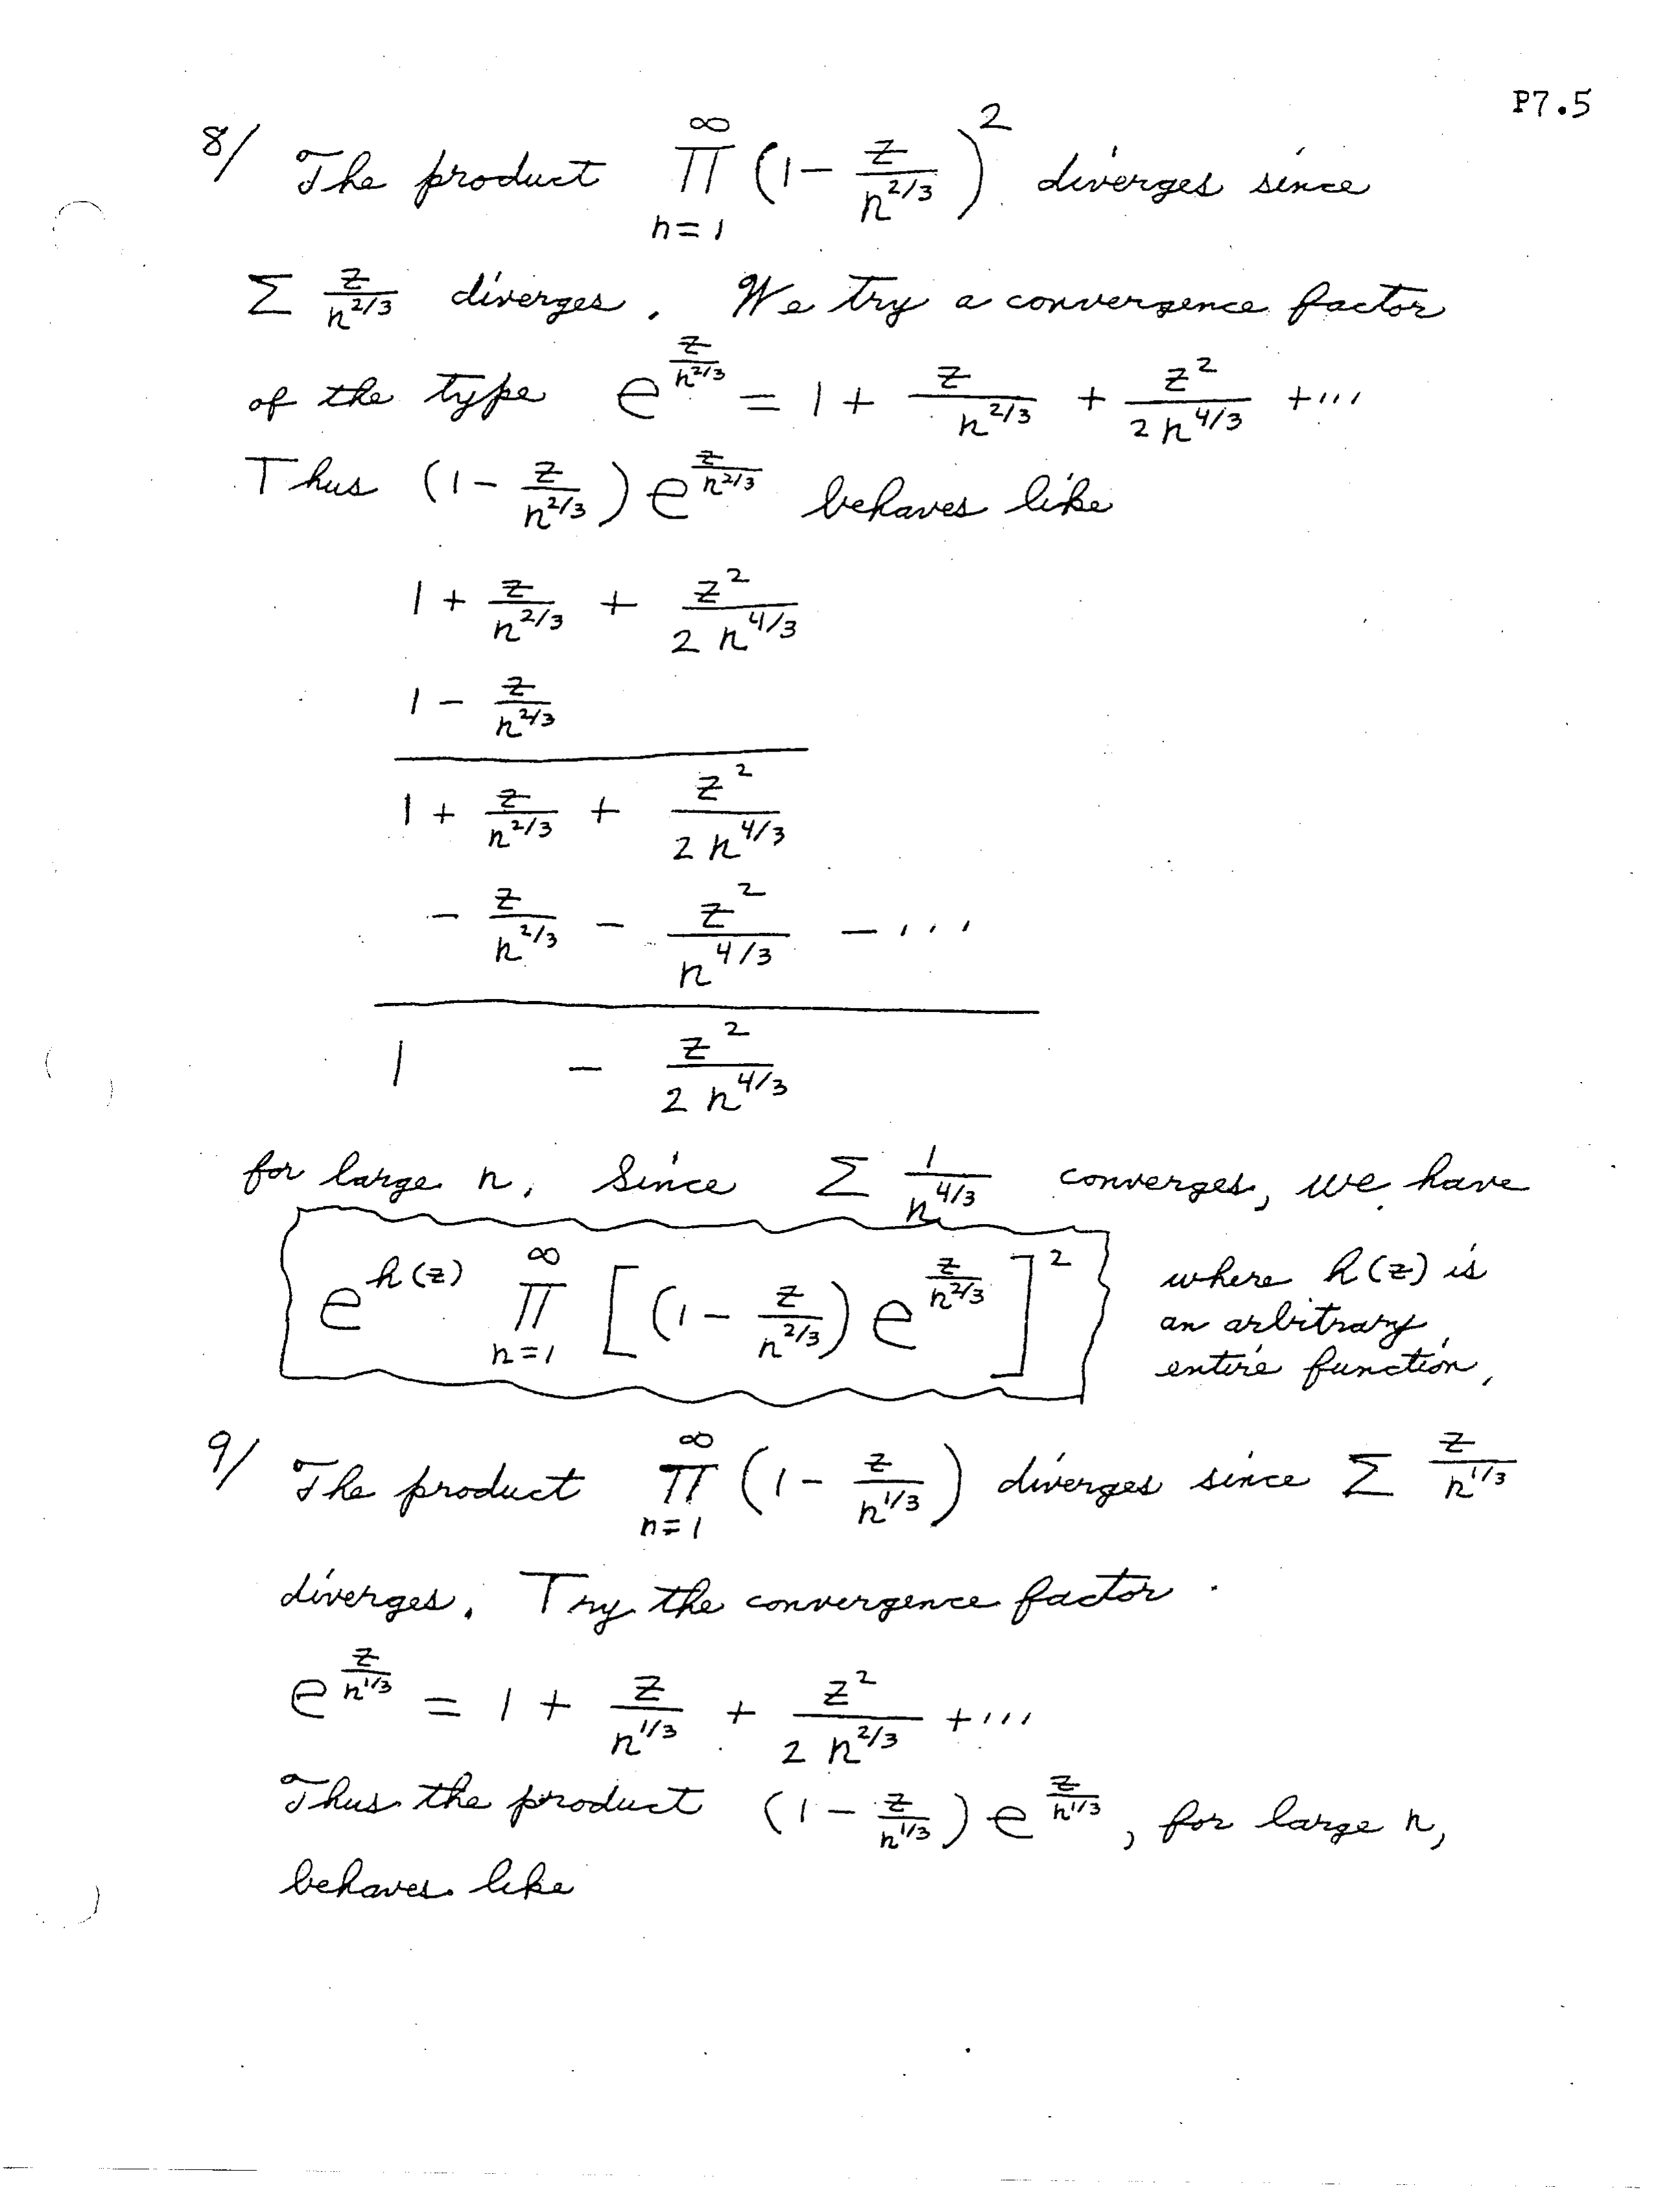 P7.5
8/ The product $\prod_{n=1}^{\infty} \left(1 - \frac{z}{n^{2/3}}\right)^2$ diverges since
$\sum \frac{z}{n^{2/3}}$ diverges. We try a convergence factor
of the type $e^{\frac{z}{n^{2/3}}} = 1 + \frac{z}{n^{2/3}} + \frac{z^2}{2n^{4/3}} + \cdots$
Thus $\left(1 - \frac{z}{n^{2/3}}\right) e^{\frac{z}{n^{2/3}}}$ behaves like
$1 + \frac{z}{n^{2/3}} + \frac{z^2}{2n^{4/3}}$
$1 - \frac{z}{n^{2/3}}$
$1 + \frac{z}{n^{2/3}} + \frac{z^2}{2n^{4/3}}$
$- \frac{z}{n^{2/3}} - \frac{z^2}{n^{4/3}} - \cdots$
$1 - \frac{z^2}{2n^{4/3}}$
for large n. Since $\sum \frac{1}{n^{4/3}}$ converges, we have
$e^{h(z)} \prod_{n=1}^{\infty} \left[\left(1 - \frac{z}{n^{2/3}}\right) e^{\frac{z}{n^{2/3}}}\right]^2$
where h(z) is
an arbitrary
entire function.
9/ The product $\prod_{n=1}^{\infty} \left(1 - \frac{z}{n^{1/3}}\right)$ diverges since $\sum \frac{z}{n^{1/3}}$
diverges. Try the convergence factor
$e^{\frac{z}{n^{1/3}}} = 1 + \frac{z}{n^{1/3}} + \frac{z^2}{2n^{2/3}} + \cdots$
Thus the product $\left(1 - \frac{z}{n^{1/3}}\right) e^{\frac{z}{n^{1/3}}}$, for large n,
behaves like